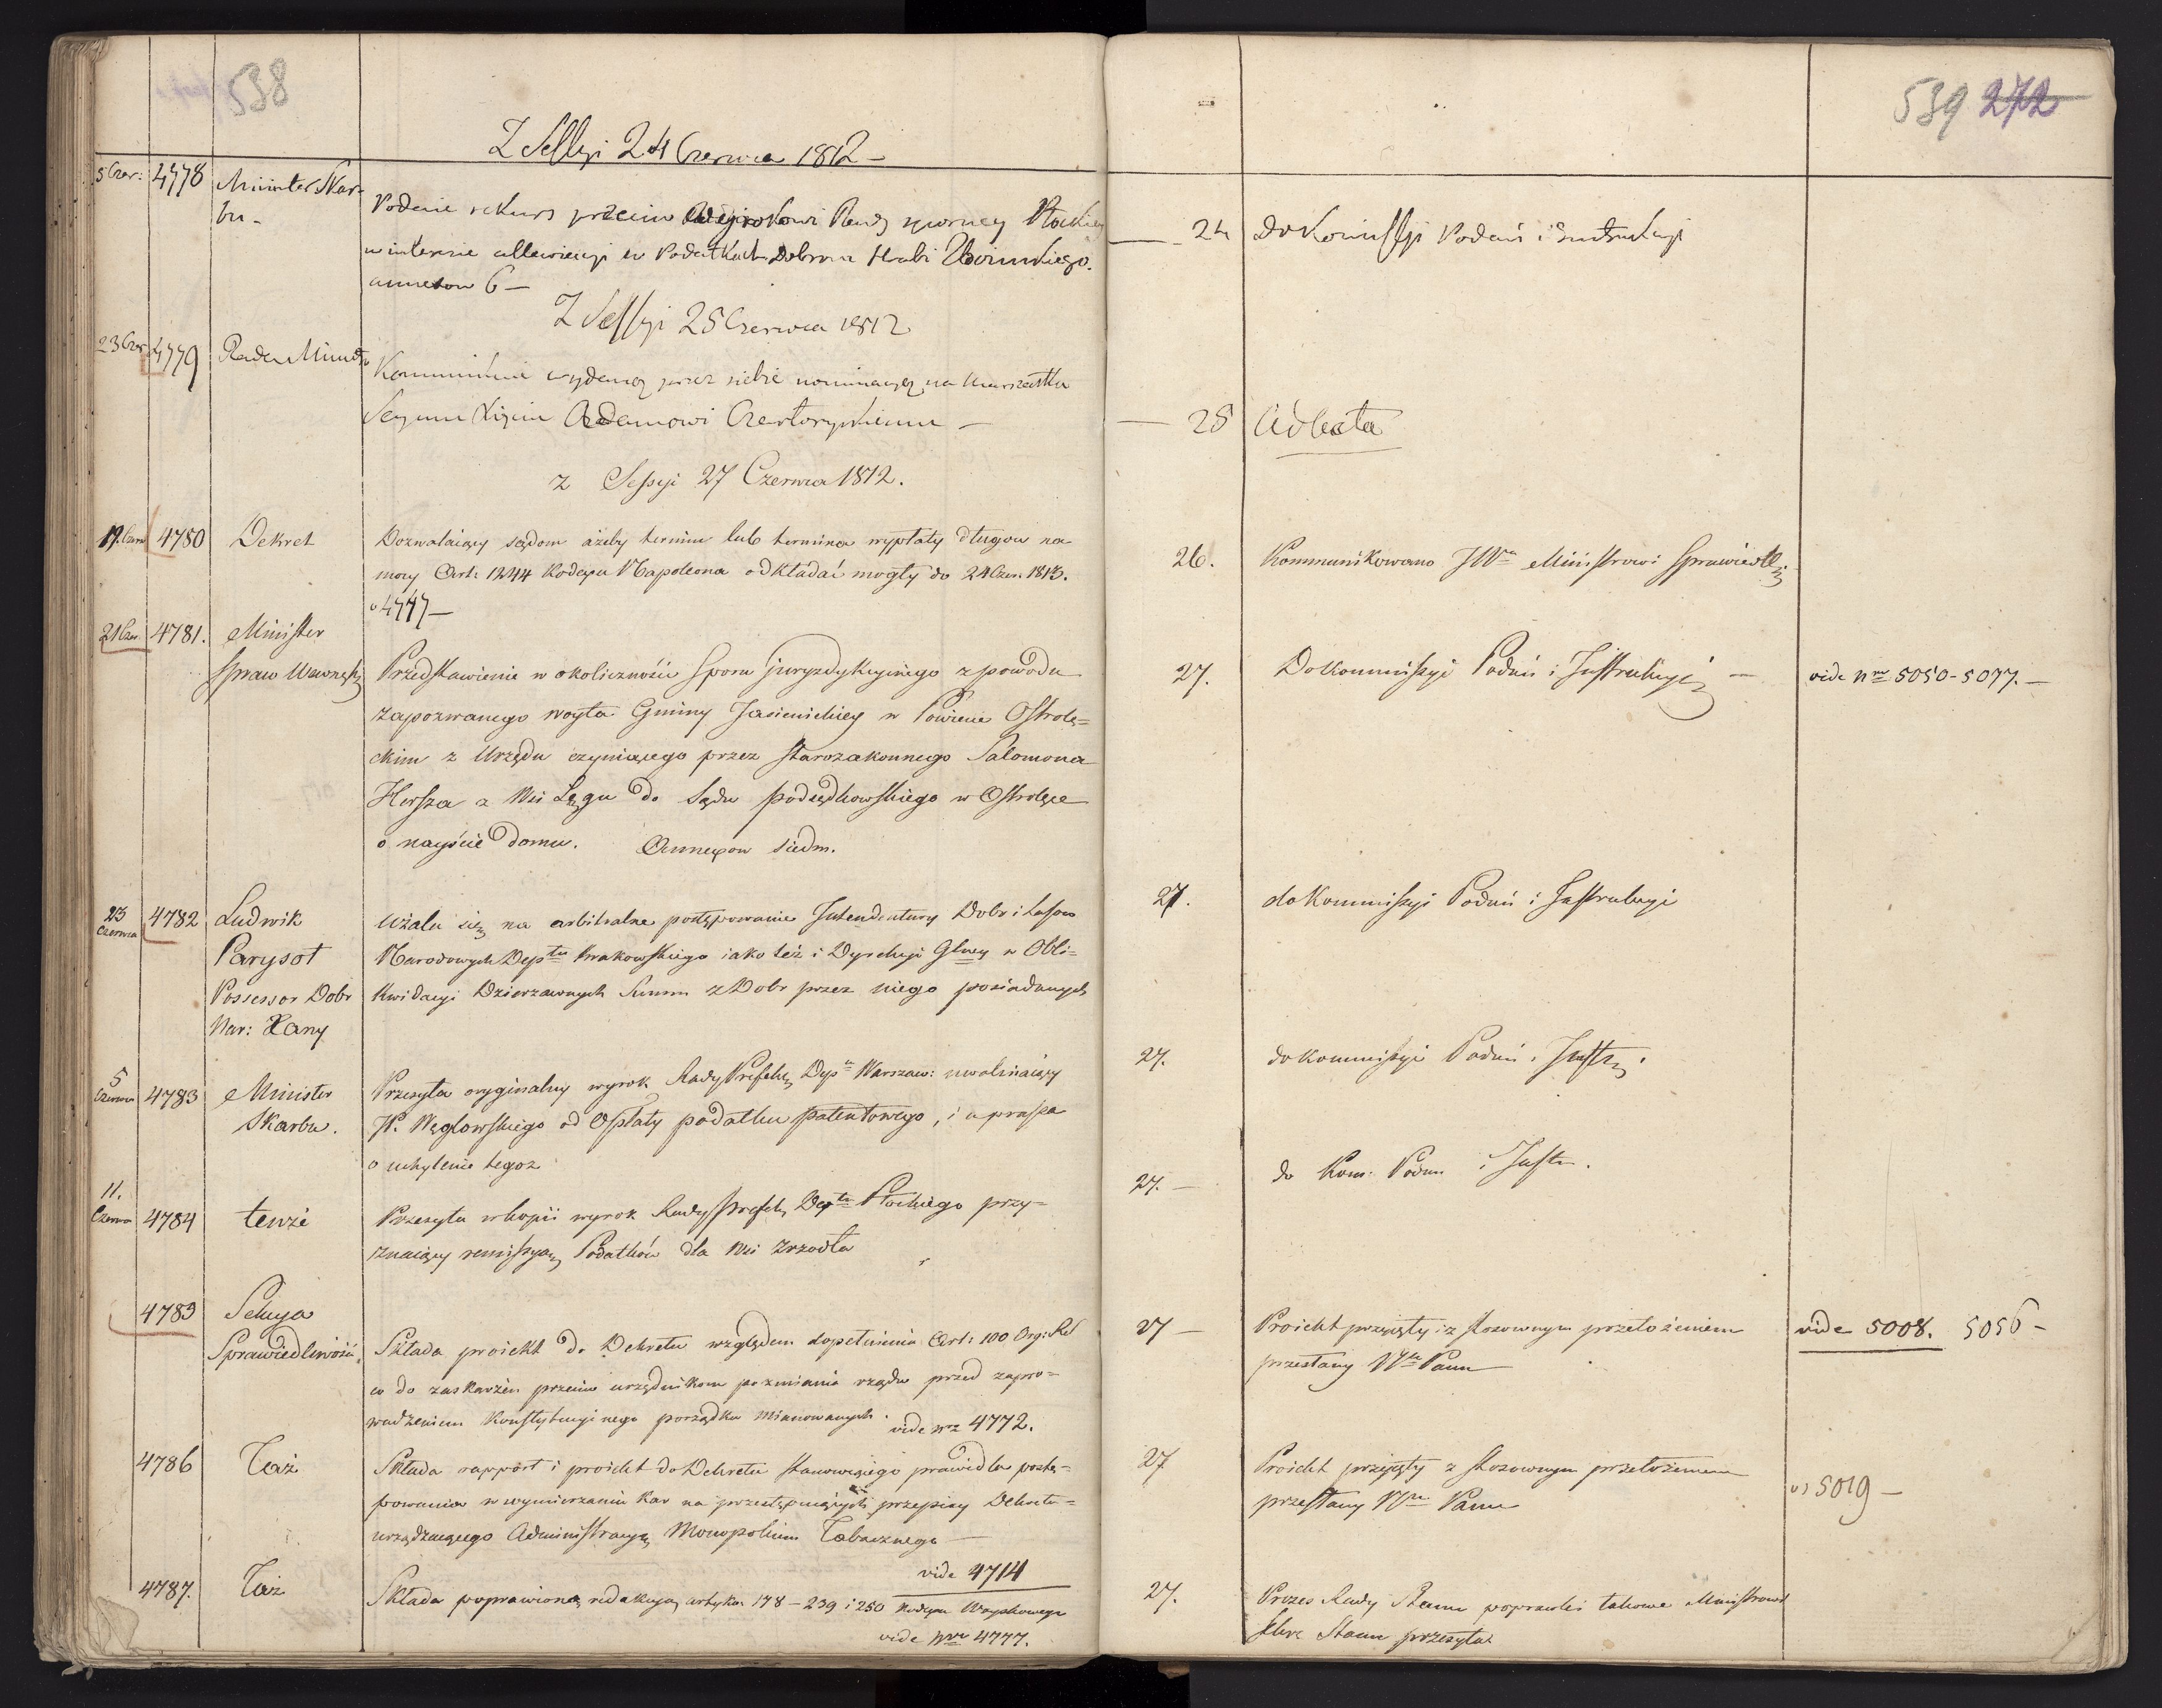 538
Z Sessyi 24 Czerwca 1812 –
5 Czer: 4778 Minister Skar-
bu –
Podanie rekurs przeciw Wyrokowi Rady sporney Płockiey
w interesie allewiacyi w Podatkach Dobrom Hrabi
annexow 6 –
Z Sessyi 25 Czerwca 1812
23 Czer 4779 Rada Minist
Kommunikuie wydaną przez siebie nominacyą na Marszałka
Seymu Xięciu Adamowi Czartoryskiemu –
z Sessyi 27 Czerwca 1812.
19. Czerw 4780 Dekret
Dozwalaiący sądom ażeby termin lub termina wypłaty długow na
mocy Art: 1244 Kodexu Napoleona odkładać mogły do 24 Czer. 1813.
v 4747 –
21 Czer 4781. Minister
Spraw Wewnętrz
Przedstawienie w okoliczności Sporu juryzdykcyinego z powodu
zapozwanego woyta Gminy Jasienickiey w Powiecie Ostrołę=
ckim z Urzędu czyniącego przez starozakonnego Salomona
Hersza z Wsi Łęgu do Sądu podsędkowskiego w Ostrołęce
o nayście domu. Annexow siedm.
23 Czerwca 4782 Ludwik
Parysot
Possessor Dobr
Nar: Xany
Użala się na arbitralne postępowanie Intendentury Dobr i Lasow
Narodowych Deptu Krakowskiego iako też i Dyrekcyi Głney w Obli=
kwidacyi Dzierzawnych Summ z Dobr przez niego posiadanych
5 Czerwca 4783 Minister
Skarbu.
Przesyła oryginalny wyrok Rady Prefektu Dep Warszaw: uwalniaiący
W. Węglowskiego od Opłaty podatku patentowego, i uprasza
o uchylenie tegoz
11. Czerwca 4784 tenże
Przesyła w kopii wyrok Rady Prefek, Deptu Płockiego przy=
znaiący remissyą Podatków dla Wsi Zrzodła
4785 Sekcya
Sprawiedliwości
Składa proiekt do Dekretu względem dopełnienia Art: 100 Org:
co do zaskarżeń przeciw urzędnikom po zmianie rządu przed zapro=
wadzeniem Konstytucyinego porządku mianowanych. vide nr 4772.
4786 Taż
Składa rapport i proiekt do Dekretu stanowiącego prawidła postę=
powania w wymierzaniu kar na przestępuiących przepisy Dekretu=
urządzaiącego Administracyą Monopolium Tabacznego –
vide 4714
4787. Taż
Składa poprawioną redakcyą artyku. 178 – 239 i 250 Kodexu Woyskowego
vide Nro 4777.
539 272
24 do Komissyi Podań i Instrukcyi
25 Ad Acta
26. Kommunikowano JWu Ministrowi Sprawiedl.
27. Do Kommissyi Podań i Instrukcyi –
vide nro 5050 - 5077. –
27. do Kommissyi Podań i Instrukcyi
27. do Kommissyi Podań i Instr.
27. – do Kom: Podan i Instr.
27 – Proiekt przyięty i z stosownym przełożeniem
przesłany NPanu
vide 5008. 5056 –
27 Proiekt przyięty z stosownym przełożeniem
przesłany NPanu
v) 5019 –
27. Prezes Rady Stanu poprawki takowe Ministrowi
Sekre Stanu przesyła